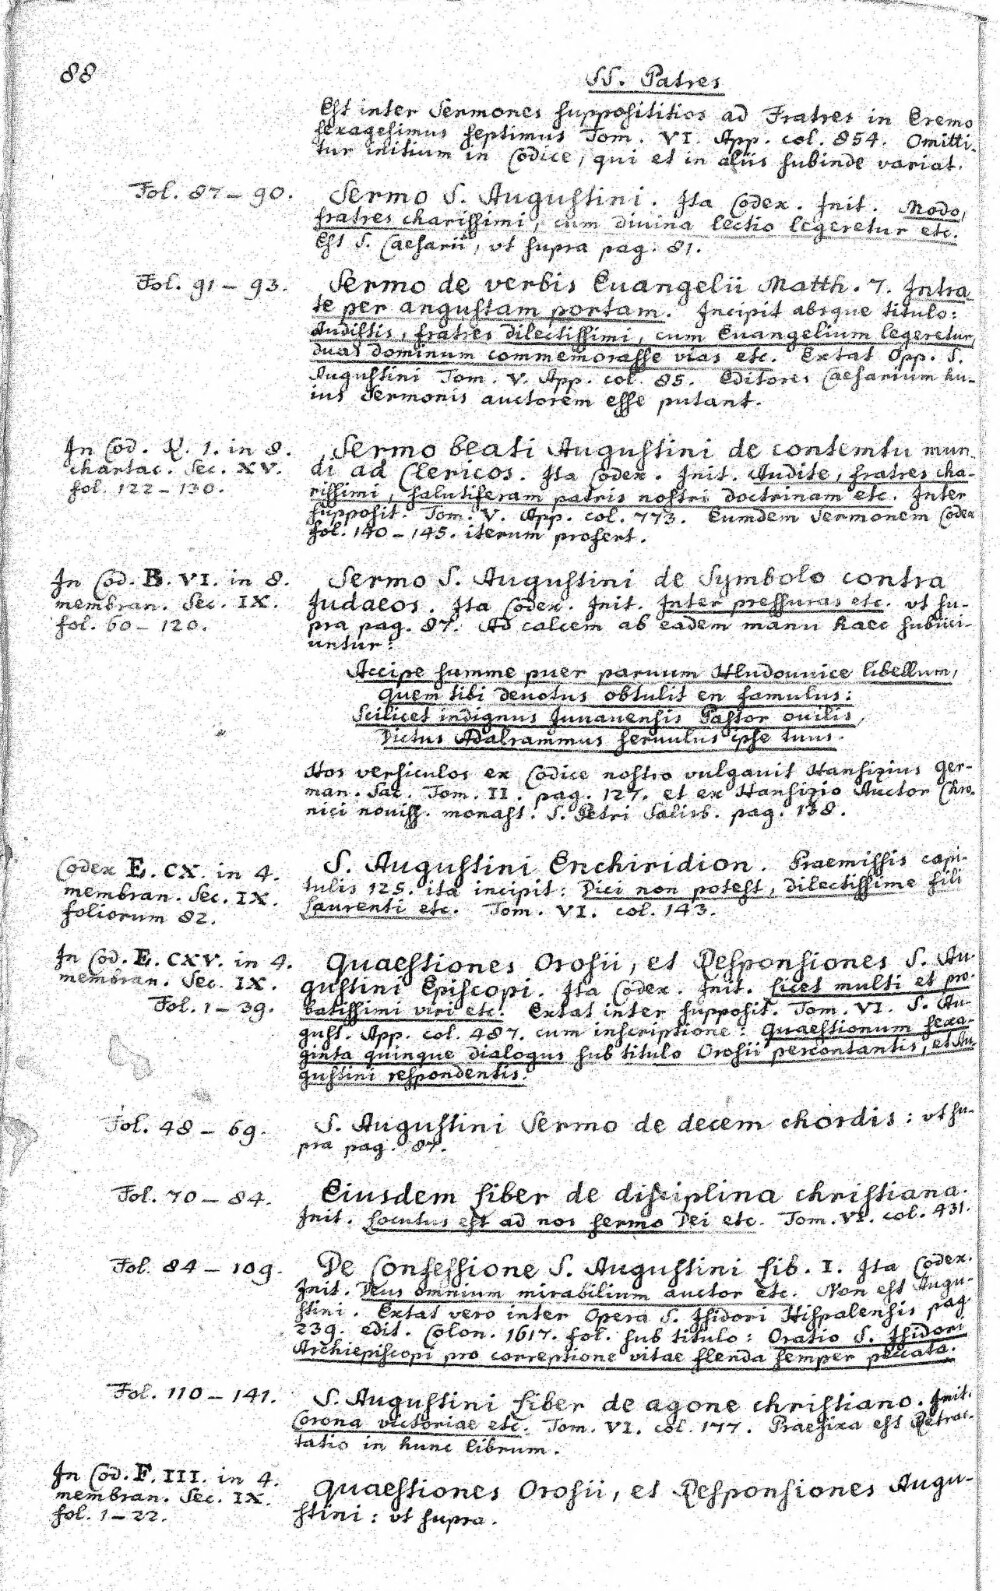 88
SS. Patres
Est inter Sermones supposititios ad Fratres in Eremo
sexagesimus septimus Tom. VI. App. col. 854. Omitti-
tur initium in Codice, qui et in aliis subinde variat.
Fol. 87 – 90. Sermo S. Augustini. Ita Codex. Init. Modo,
fratres charissimi, cum divina lectio legeretur etc.
Est S. Caesarii, vt supra pag. 81.
Fol. 91 – 93. Sermo de verbis Euangelii Matth. 7. Intra-
te per angustam portam. Incipit absque titulo:
Audistis, fratres dilectissimi, cum Euangelium legeretur,
duas dominum commemorasse vias etc. Extat Opp. S.
Augustini Tom. V. App. col. 85. Editores Caesarium hu-
ius Sermonis auctorem esse putant.
In Cod. K. 1. in 8. Sermo beati Augustini de contemtu mun-
chartac. Sec. XV. di ad Clericos. Ita Codex. Init. Audite, fratres cha-
fol. 122 – 130. rissimi, salutiferam patris nostri doctrinam etc. Inter
supposit. Tom. V. App. col. 773. Eumdem Sermonem Codex
fol. 140 – 145. iterum profert.
In Cod. B. VI. in 8. Sermo S. Augustini de Symbolo contra
membran. Sec. IX. Judaeos. Ita Codex. Init. Inter pressuras etc. vt su-
fol. 60 – 120. pra pag. 87. Ad calcem ab eadem manu haec subiici-
untur:
Accipe summe puer paruum Hludouuice libellum,
Quem tibi deuotus obtulit en famulus:
Scilicet indignus Juuauensis Pastor ouilis,
Dictus Adalrammus seruulus ipse tuus.
Hos versiculos ex Codice nostro vulgauit Hansizius Ger-
man. Sac. Tom. II. pag. 127. et ex Hansizio Auctor Chro-
nici nouiss. monast. S. Petri Salisb. pag. 138.
Codex E. CX. in 4. S. Augustini Enchiridion. Praemissis capi-
membran. Sec. IX. tulis 125. ita incipit: Dici non potest, dilectissime fili
foliorum 82. Laurenti etc. Tom. VI. col. 143.
In Cod. E. CXV. in 4. Quaestiones Orosii, et Responsiones S. Au-
membran. Sec. IX. gustini Episcopi. Ita Codex. Init. Licet multi et pro-
Fol. 1 – 39. batissimi viri etc. Extat inter supposit. Tom. VI. S. Au-
gust. App. col. 487. cum inscriptione: Quaestionum sexa-
ginta quinque dialogus sub titulo Orosii percontantis, et Au-
gustini respondentis.
Fol. 48 – 69. S. Augustini Sermo de decem chordis: vt su-
pra pag. 87.
Fol. 70 – 84. Eiusdem Liber de disciplina christiana.
Init. Locutus est ad nos sermo Dei etc. Tom. VI. col. 431.
Fol. 84 – 109. De Confessione S. Augustini Lib. I. Ita Codex.
Init. Deus omnium mirabilium auctor etc. Non est Augu-
stini. Extat vero inter Opera S. Isidori Hispalensis pag.
239. edit. Colon. 1617. fol. sub titulo: Oratio S. Isidori
Archiepiscopi pro correptione vitae flenda semper peccata.
Fol. 110 – 141. S. Augustini Liber de agone christiano. Init.
Corona victoriae etc. Tom. VI. col. 177. Praefixa est Retrac-
tatio in hunc librum.
In Cod. F. III. in 4. Quaestiones Orosii, et Responsiones Augu-
membran. Sec. IX. stini: vt supra.
fol. 1 – 22.